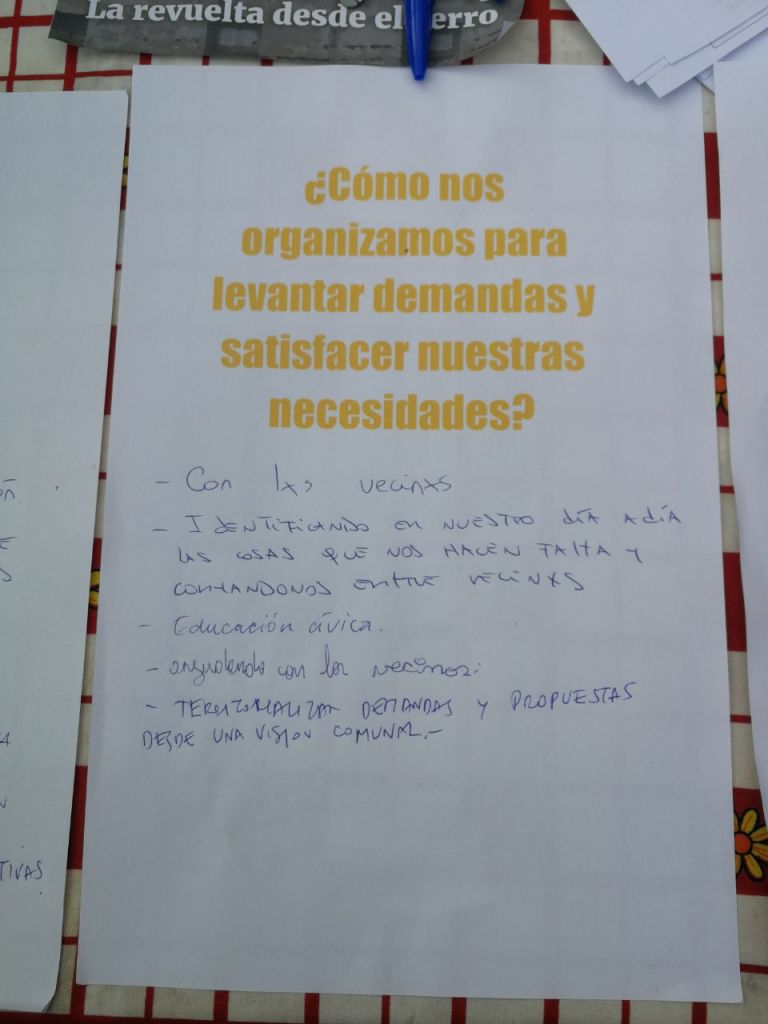 La revuelta desde el cerro
¿Cómo nos
organizamos para
levantar demandas y
satisfacer nuestras
necesidades?
- Con lxs vecinxs
- IDENTIFICANDO EN NUESTRO DÍA A DÍA
LAS COSAS QUE NOS HACEN FALTA Y
ENTRE VECINXS
- Educación cívica.
- con los vecinos.
- TERRITORIALIZAR DEMANDAS Y PROPUESTAS
DESDE UNA VISION COMUNAL.-
TIVAS